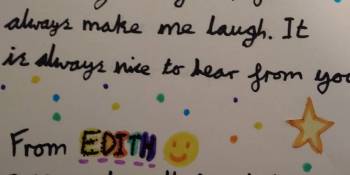 always make me laugh. It
is always nice to hear from you
From EDITH